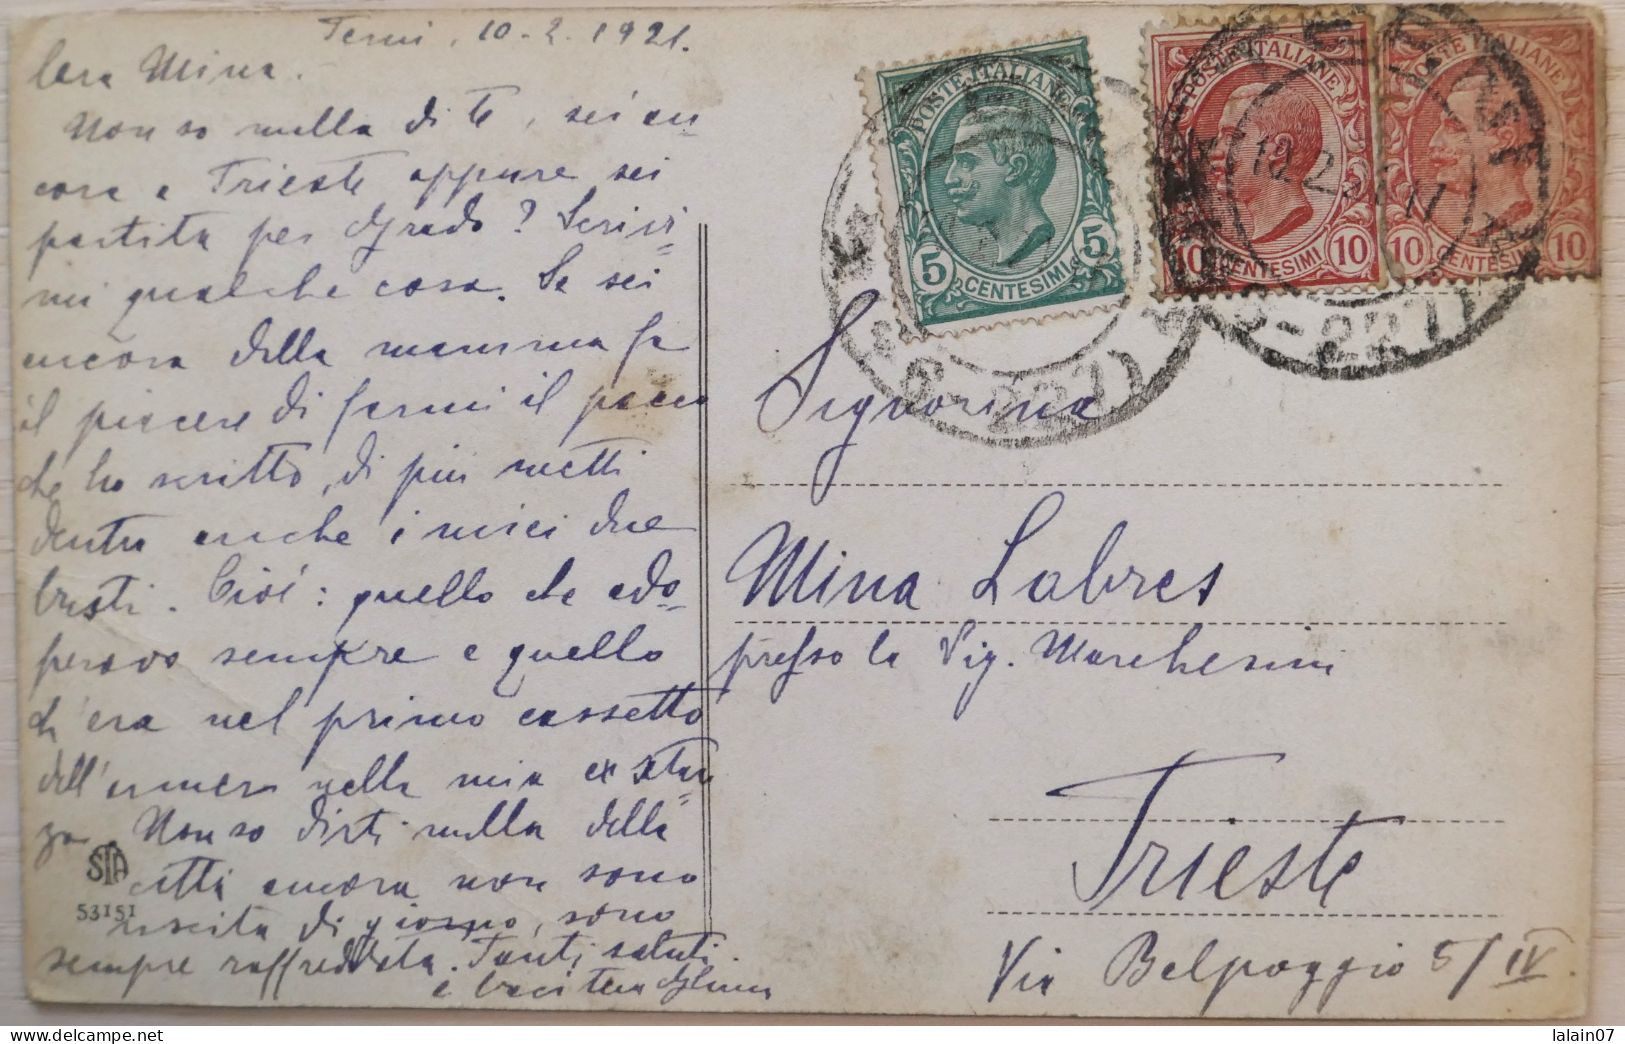 Terni, 10-2.1921.
Cara Mina.
Non so nulla di te, sei an-
cora a Trieste oppure sei
partita per Grado? Scrivi-
mi qualche cosa. Se sei
ancora dalla mamma fa
il piacere di farmi il pacco
che ho scritto, di più metti
dentro anche i miei due
busti. Cioé: quello che ado-
peravo sempre e quello
ch'era nel primo cassetto
dell'armer nella mia ex stan-
za. Non so dirti nulla della
città ancora non sono
uscita di giorno, sono
sempre raffreddata. Tanti saluti
e baci tua
STA
53151
POSTE ITALIANE
5 CENTESIMI 5
POSTE ITALIANE
10 CENTESIMI 10
POSTE ITALIANE
10 CENTESIMI 10
Signorina
Mina Labres
presso la Sig. Marchesini
Trieste
Via Belpoggio 5/IV.
lalain07